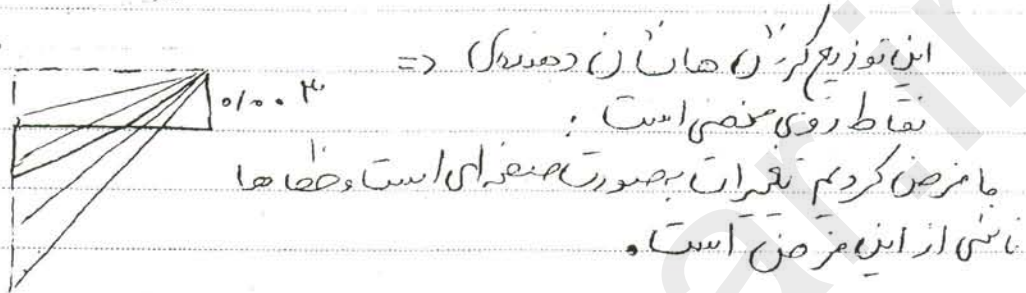 این توزیع کرنش ها نشان دهنده‌ی <=
0/003
نقاط روی منحنی است .
ما فرض کردیم تغییرات بصورت صفحه ای است و خطاها
ناشی از این فرض است .